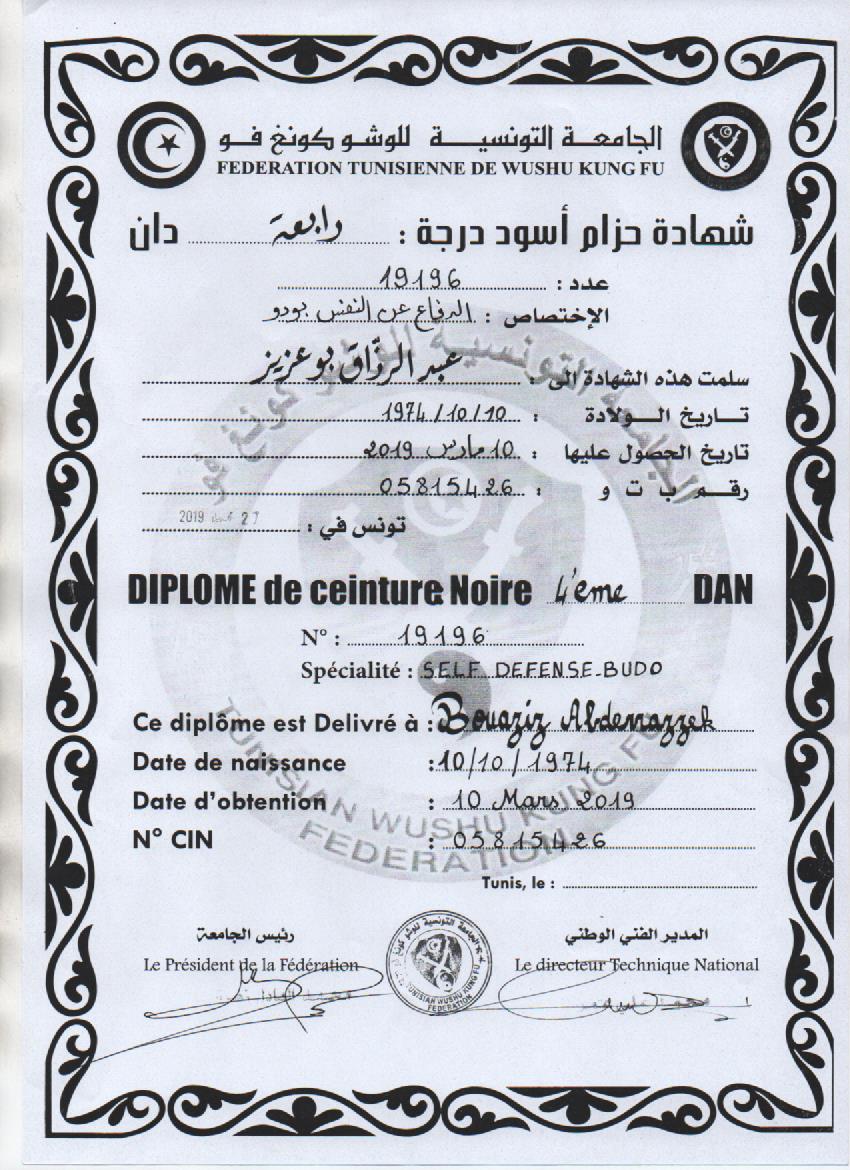 الجامعة التونسية للوشو كونغ فو
FEDERATION TUNISIENNE DE WUSHU KUNG FU
شهادة حزام أسود درجة : رابعة دان
عدد : 19196
الإختصاص : الدفاع عن النفس بودو
سلمت هذه الشهادة إلى : عبد الرزّاق بوعزيز
تاريخ الولادة : 1974/10/10
تاريخ الحصول عليها : 10 مارس 2019
رقم ب ت و : 05815426
تونس في : 27 2019
DIPLOME de ceinture Noire 4'eme DAN
N° : 19196
Spécialité : SELF DEFENSE-BUDO
Ce diplôme est Delivré à : Bouaziz Abderrazzek
Date de naissance : 10/10/1974
Date d'obtention : 10 Mars 2019
N° CIN : 05815426
TUNISIAN WUSHU KUNG FU
FEDERATION
Tunis, le :
رئيس الجامعة المدير الفني الوطني
Le Président de la Fédération Le directeur Technique National
الجامعة التونسية للوشو كونغ فو
TUNISIAN WUSHU KUNG FU
FEDERATION